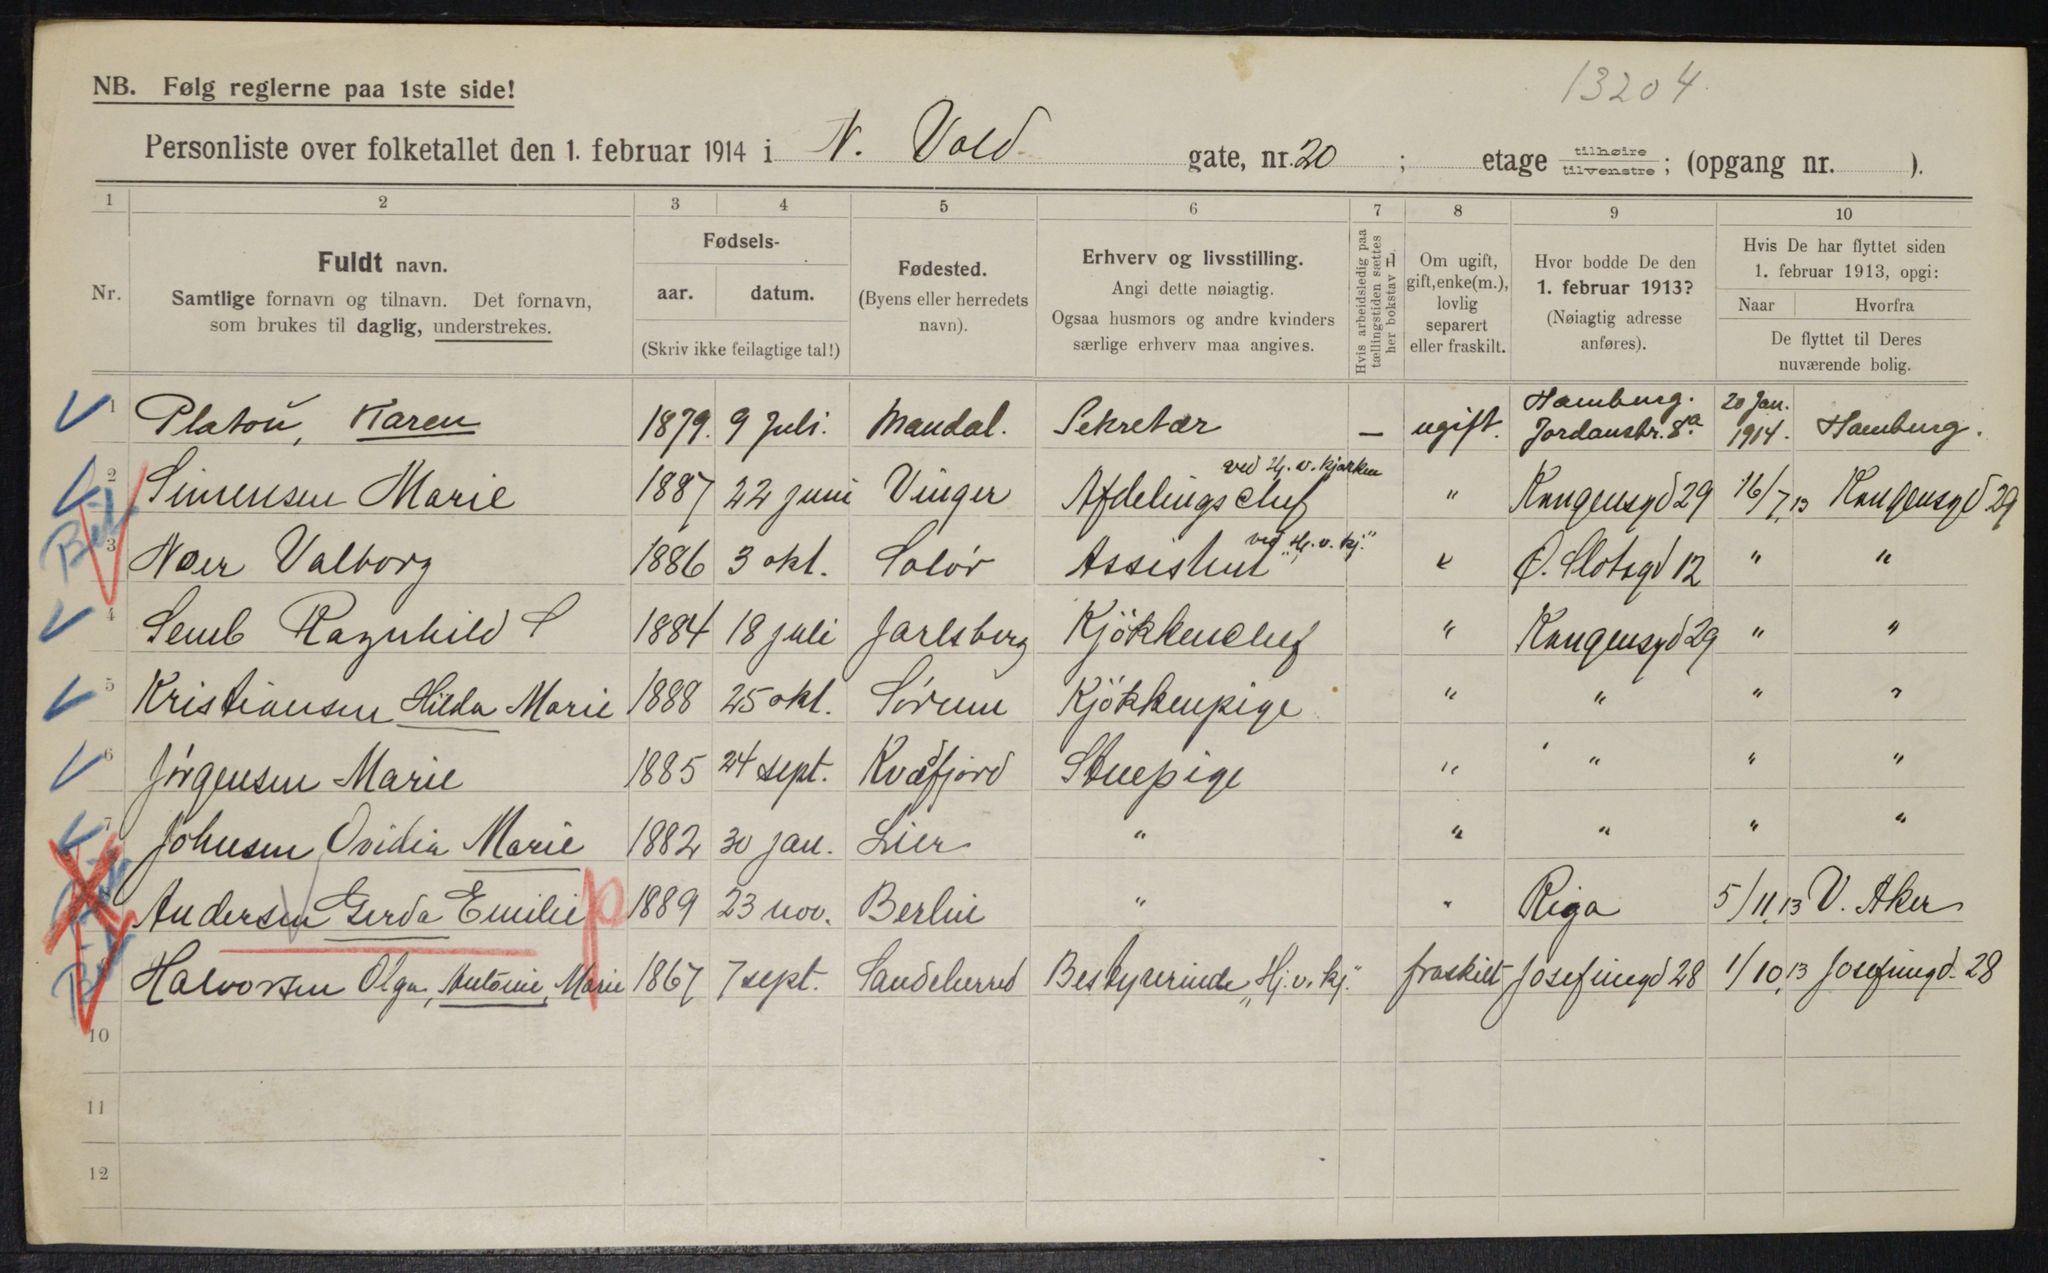 13204
NB. Følg reglerne paa 1ste side!
Personliste over folketallet den 1. februar 1914 i N. Vold gate, nr. 20 ; etage tilhøire/tilvenstre; (opgang nr. ).
1 2 3 4 5 6 7 8 9 10
Nr.
Fuldt navn.
Samtlige fornavn og tilnavn. Det fornavn,
som brukes til daglig, understrekes.
Fødsels-
aar. datum.
(Skriv ikke feilagtige tal!)
Fødested.
(Byens eller herredets
navn).
Erhverv og livsstilling.
Angi dette nøiagtig.
Ogsaa husmors og andre kvinders
særlige erhverv maa angives.
Hvis arbeidsledig paa
tællingstiden sættes
her bokstav L
Om ugift,
gift, enke(m.),
lovlig
separert
eller fraskilt.
Hvor bodde De den
1. februar 1913?
(Nøiagtig adresse
anføres).
Hvis De har flyttet siden
1. februar 1913, opgi:
Naar Hvorfra
De flyttet til Deres
nuværende bolig.
1 Platoŭ, Karen 1879. 9 Juli. Mandal. Sekretær — ugift. Hamburg. Jordanstr. 8a 20 Jan. 1914. Hamburg.
2 Simensen Marie 1887 22 juni Vinger Afdelingschef ved Hj. v. kjøkken " Kongensgd 29 16/7,13 Kongensgd 29
3 Næer Valborg 1886 3 okt. Solør Assistent ved "Hj. v. kj." " Ø. Slotsgd 12 " "
4 Semb Ragnhild S 1884 18 juli Jarlsberg Kjökkenchef " Kongensgd 29 " "
5 Kristiansen Hilda Marie 1888 25 okt. Sørum Kjökkenpige " " " "
6 Jörgensen Marie 1885 24 sept. Kvædfjord Stuepige " " " "
7 Johnsen Ovidia Marie 1882 30 jan. Lier " " " " "
Andersen Gerda Emilie 1889 23 nov. Berlin " " Riga 5/11,13 V. Aker
Halvorsen Olga, Antonie, Marie 1867 7 sept. Sandeherred Bestyrerinde "Hj. v. kj." fraskilt Josefinegd 28 1/10,13 Josefinegd. 28
10
11
12